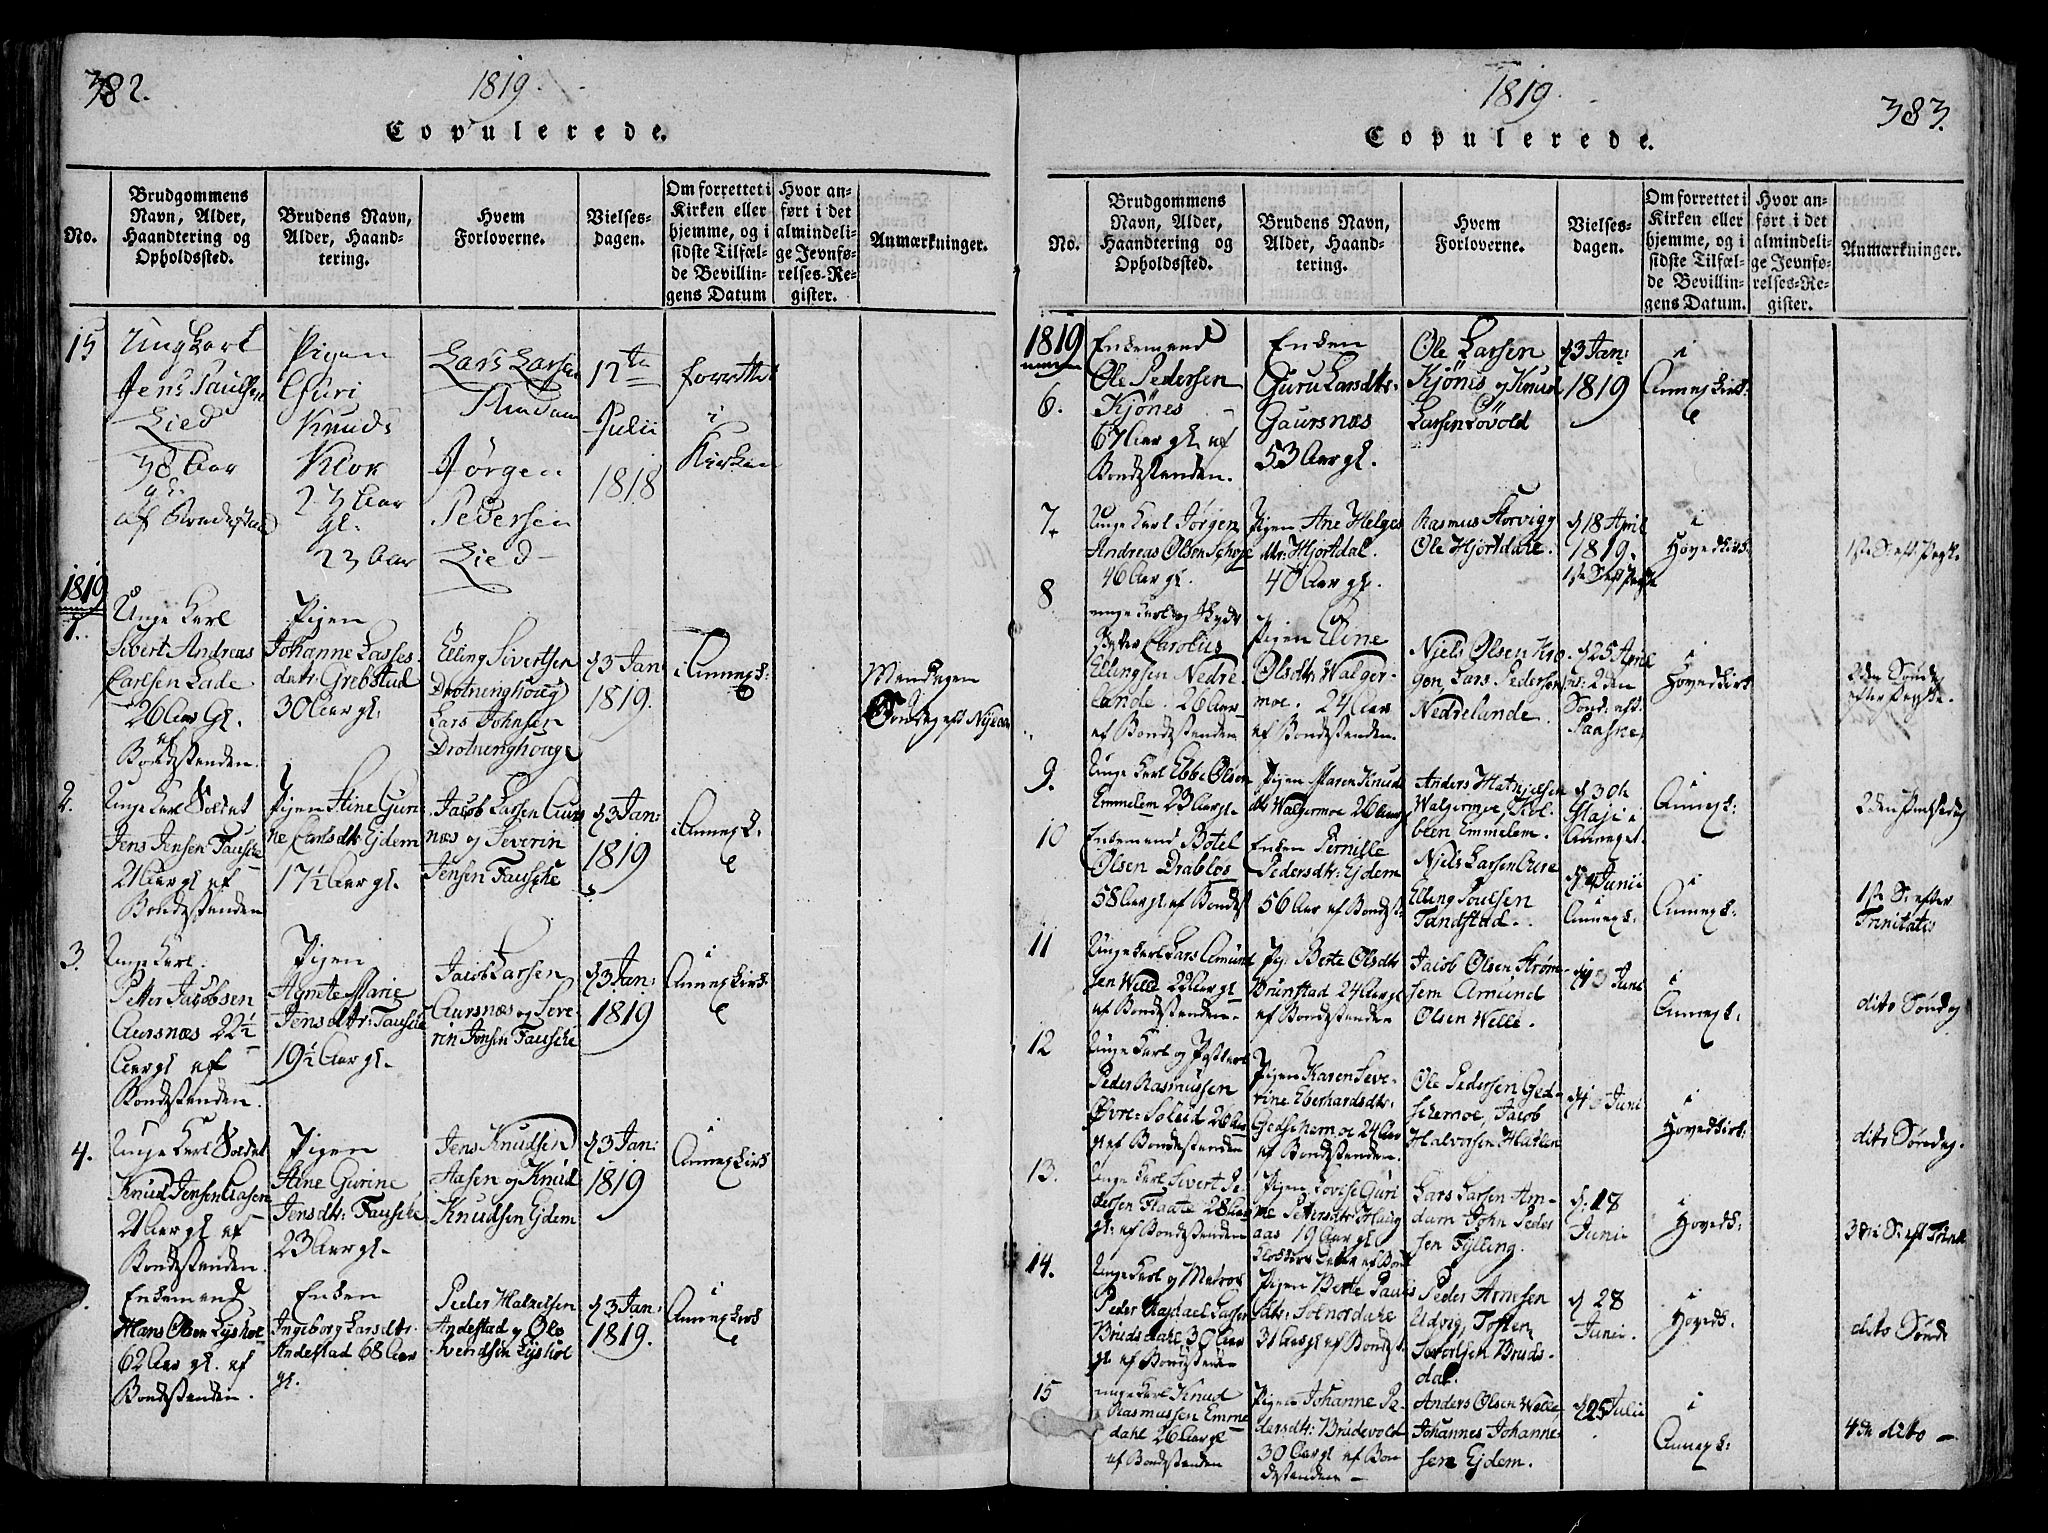 382.
1819.
Copulerede.
No.
Brudgommens Navn, Alder, Haandtering og Opholdssted.
Brudens Navn, Alder, Haandtering.
Hvem Forloverne.
Vielsesdagen.
Om forrettet i Kirken eller hjemme, og i sidste Tilfælde Bevillingens Datum
Hvor anført i det almindelige Jevnførelses-Register.
Anmærkninger.
15
Ung Karl
Jens Paulsen
Lied
38 Aar
gl.
af Bondestand
Pigen
Guri
Knuds
Klok
23 Aar
gl.
23 Aar
Lars Larsen
Amdam
Jörgen
Pedersen
Lied
12te
Julii
1818
forrettet
i
Kirken
1819
1.
Unge Karl
Sivert Andreas
Carlsen Lade
26 Aar Gl.
af
Bondestanden.
Pigen
Johanne Lasses
datr: Grebstad
30 Aar gl:
Elling Sivertsen
Drotninghoug
Lars Johnsen
Drotninghouge
d 3 Jan:
1819.
i Annexk:
Mandagen
Söndag eft Nyeaar
2.
Unge Karl Soldat
Jens Jensen Fausche
21 Aar gl af
Bondestanden
Pigen Stine Guri
ne Carlsdtr: Ejdem
17½ Aar gl.
Jacob Larsen Aurs
næs og Severin
Jensen Fausche
d 3 Jan:
1819
i Annexk.
3.
Unge Karl.
Petter Jacobsen
Aursnæs 22½
Aar gl af
Bondestanden.
Pigen
Agnete Marie
Jensdtr: Fausche
19½ Aar gl.
Jacob Larsen
Aursnæs og Seve
rin Jensen Fausche
d 3 Jan:
1819
i
Annexkirk
4.
Unge Karl Soldat
Knud Jensen Aasen
21 Aar gl af
Bondestanden.
Pigen
Stine Gurine
Jensdtr: Fausche
23 Aar gl.
Jens Knudsen
Aasen og Knud
Knudsen Ejdem
d 3 Jan:
1819
i
Annexkirk
Enkemand
Hans Olsen Lyshol
62 Aar gl. af
Bondestanden.
Enken
Ingeborg Larsdtr:
Andestad 68 Aar
gl.
Peder
Andestad og Ole
Svendsen Lyshol
d 3 Jan:
1819.
i
Annexkirk
1819
383.
Copulerede.
No.
Brudgommens Navn, Alder, Haandtering og Opholdssted.
Brudens Navn, Alder, Haandtering.
Hvem Forloverne.
Vielsesdagen.
Om forrettet i Kirken eller hjemme, og i sidste Tilfælde Bevillingens Datum.
Hvor anført i det almindelige Jevnførelses-Register.
Anmærkninger.
1819
6.
Enkemand
Ole Pedersen
Kjönes
67 Aar gl. af
Bondestanden.
Enken
Guru Larsdtr:
Gaursnæs
53 Aar gl.
Ole Larsen
Kjönes og Knud
Larsen Lövold
d 3 Jan:
1819
i
Annexkirk
7.
Unge Karl Jörgen
Andreas Olsen
46 Aar gl.
Pigen Ane Helges
dtr: Hjortdal.
40 Aar gl.
Rasmus Storvigg
Ole Hjortdahl.
d 18 April
1819.
1ste S eft Paaske
i
Hovedkirk
1ste S: eft Paask.
8
unge Karl og
Carolius
Ellingsen Nedre
lande. 26 Aar
af Bondestanden
Pigen Eline
Olsdtr: Walger
moe. 24 Aar
af Bondestanden.
Niels Olsen Kro
gen, Lars Pedersen
Nedrelande.
d 25 April
2den
Sönd: eft.
i
Hovedkirk
2den Söndag
efter Paaske.
9.
Unge Karl Ebbe Olsen
Emmelem 23 Aar gl.
Pigen Maren Knuds
dtr Walgermoe 26 Aar gl
Anders Mathiesen
Walgermoe,
Emmelem.
d 30te
Maji i
Annexet.
i
Annexk:
2den Pintsedag
10
Enkemand Botel
Olsen Drablös
58 Aar gl af Bondest
Enken Pernille
Pedersdtr: Ejdem
56 Aar af Bondest:
Niels Larsen Aure
Elling Poulsen
Tandstad.
Junii
Annexk:
i
Annexk:
1ste S: efter
Trinitatis
11
Unge Karl Lars Amund
sen Welle 22 Aar gl
af Bondestanden.
Pig: Berte Olsdtr
Brunstad 24 Aar gl
af Bondestanden
Jacob Olsen Ström
sem Amund
Olsen Welle.
Juni
i
Annexk.
dito Söndag
12
Unge Karl og
Peder Rasmussen
Övre: Soleid 26 Aar
gl af Bondestanden
Pigen Karen Seve
rine Eberhardsdtr:
Gjedschemoe 24 Aar
af Bondestanden.
Ole Pedersen Ged
schemoe, Jacob
Halvorsen Hatlen
Juni
i
Hovedkirk:
dito Söndag.
13.
Unge Karl Sivert Pe
dersen Flaate 28 Aar
gl: af Bondestanden
Pigen Lovise Guri
ne Pettersdtr: Haug
aas 19 Aar gl
Lars Larsen Am
dam John Peder
sen Fylling.
d: 17
Juni
i
Hovedk:
3die S: eft Trinit
14.
Unge Karl og Matros
Peder Raphael Larsen
Brudsdahl 30 Aar
gl af Bondestanden
Pigen Berte Pauls
datr: Solnordahl
31 Aar gl af Bondest:
Peder Arnesen
Udvig, Tosten
Brudsdal.
d 28
Junii.
i
Hovedk.
dito Sönd
15
unge Karl Knud
Rasmussen Emme
dahl 26 Aar gl
af Bondestanden
Pigen Johanne Pe
dersdtr: Brudevold
30 Aar gl af Bon
destanden
Anders Olsen Welle,
Johannes Johanne
sen Ejdem.
d 25 Julii
i
Annexk:
4de dito